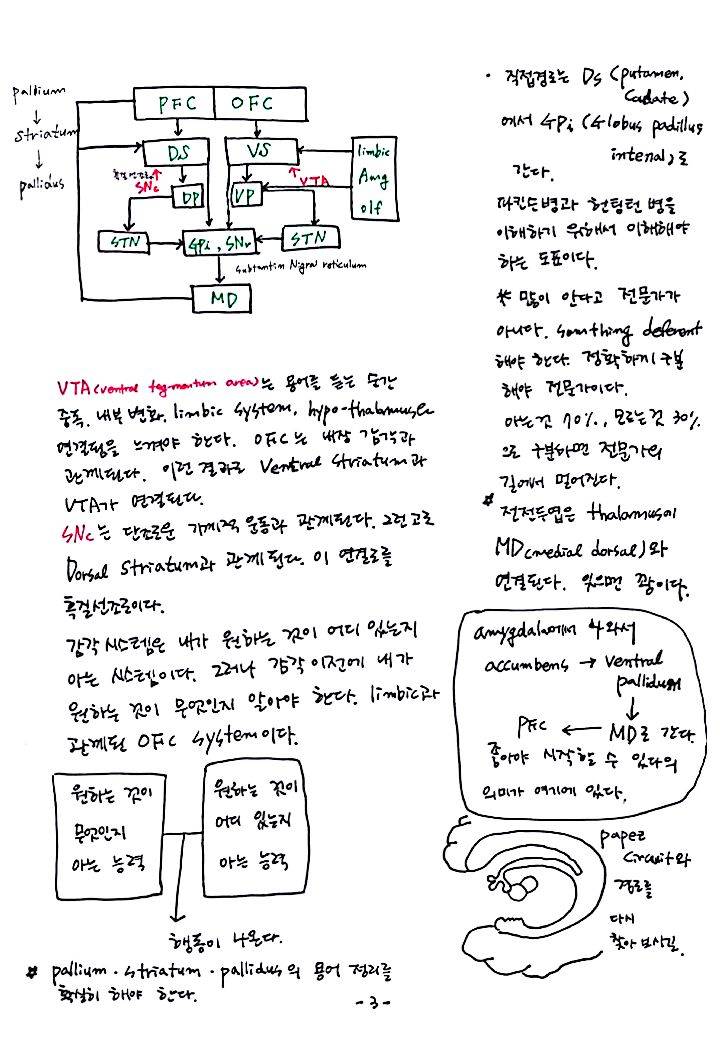 pallium
↓
striatum
↓
pallidus
PFC OFC
DS VS
limbic
Amg
olf
SNc
VTA
DP VP
STN GPi, SNr STN
substantim Nigral reticulum
MD
VTA(ventral tegmentum area)는 용어를 듣는 순간
중독, 내부 변화, limbic system, hypo-thalamus로
연결됨을 느껴야 한다. OFC는 내장 감각과
관계된다. 이런 결과로 Ventral Striatum과
VTA가 연결된다.
SNc는 단조로운 기계적 운동과 관계된다. 그런고로
Dorsal Striatum과 관계된다. 이 연결로를
흑질선조로이다.
감각 시스템은 내가 원하는 것이 어디 있는지
아는 시스템이다. 그러나 감각 이전에 내가
원하는 것이 무엇인지 알아야 한다. limbic과
관계된 OFC system이다.
원하는 것이
무엇인지
아는 능력
원하는 것이
어디 있는지
아는 능력
행동이 나온다.
* pallium · striatum · pallidus의 용어 정리를
확실히 해야 한다.
- 3 -
· 직접경로는 DS (putamen,
Caudate)
에서 GPi (Globus padillus
intenal)로
간다.
파킨슨병과 헌팅턴 병을
이해하기 위해서 이해해야
하는 도표이다.
* 많이 안다고 전문가가
아니다. somthing deferent
해야 한다. 정확하게 구분
해야 전문가이다.
아는 것 70%, 모르는 것 30%
으로 구분하면 전문가의
길에서 멀어진다.
* 전전두엽은 thalamus의
MD(medial dorsal)와
연결된다. 있으면 꽝이다.
amygdala에서 나와서
accumbens → ventral
pallidum
↓
PFC ← MD로 간다.
좋아야 시작할 수 있다의
의미가 여기에 있다.
papez
circuit와
경로를
다시
찾아 보시길.